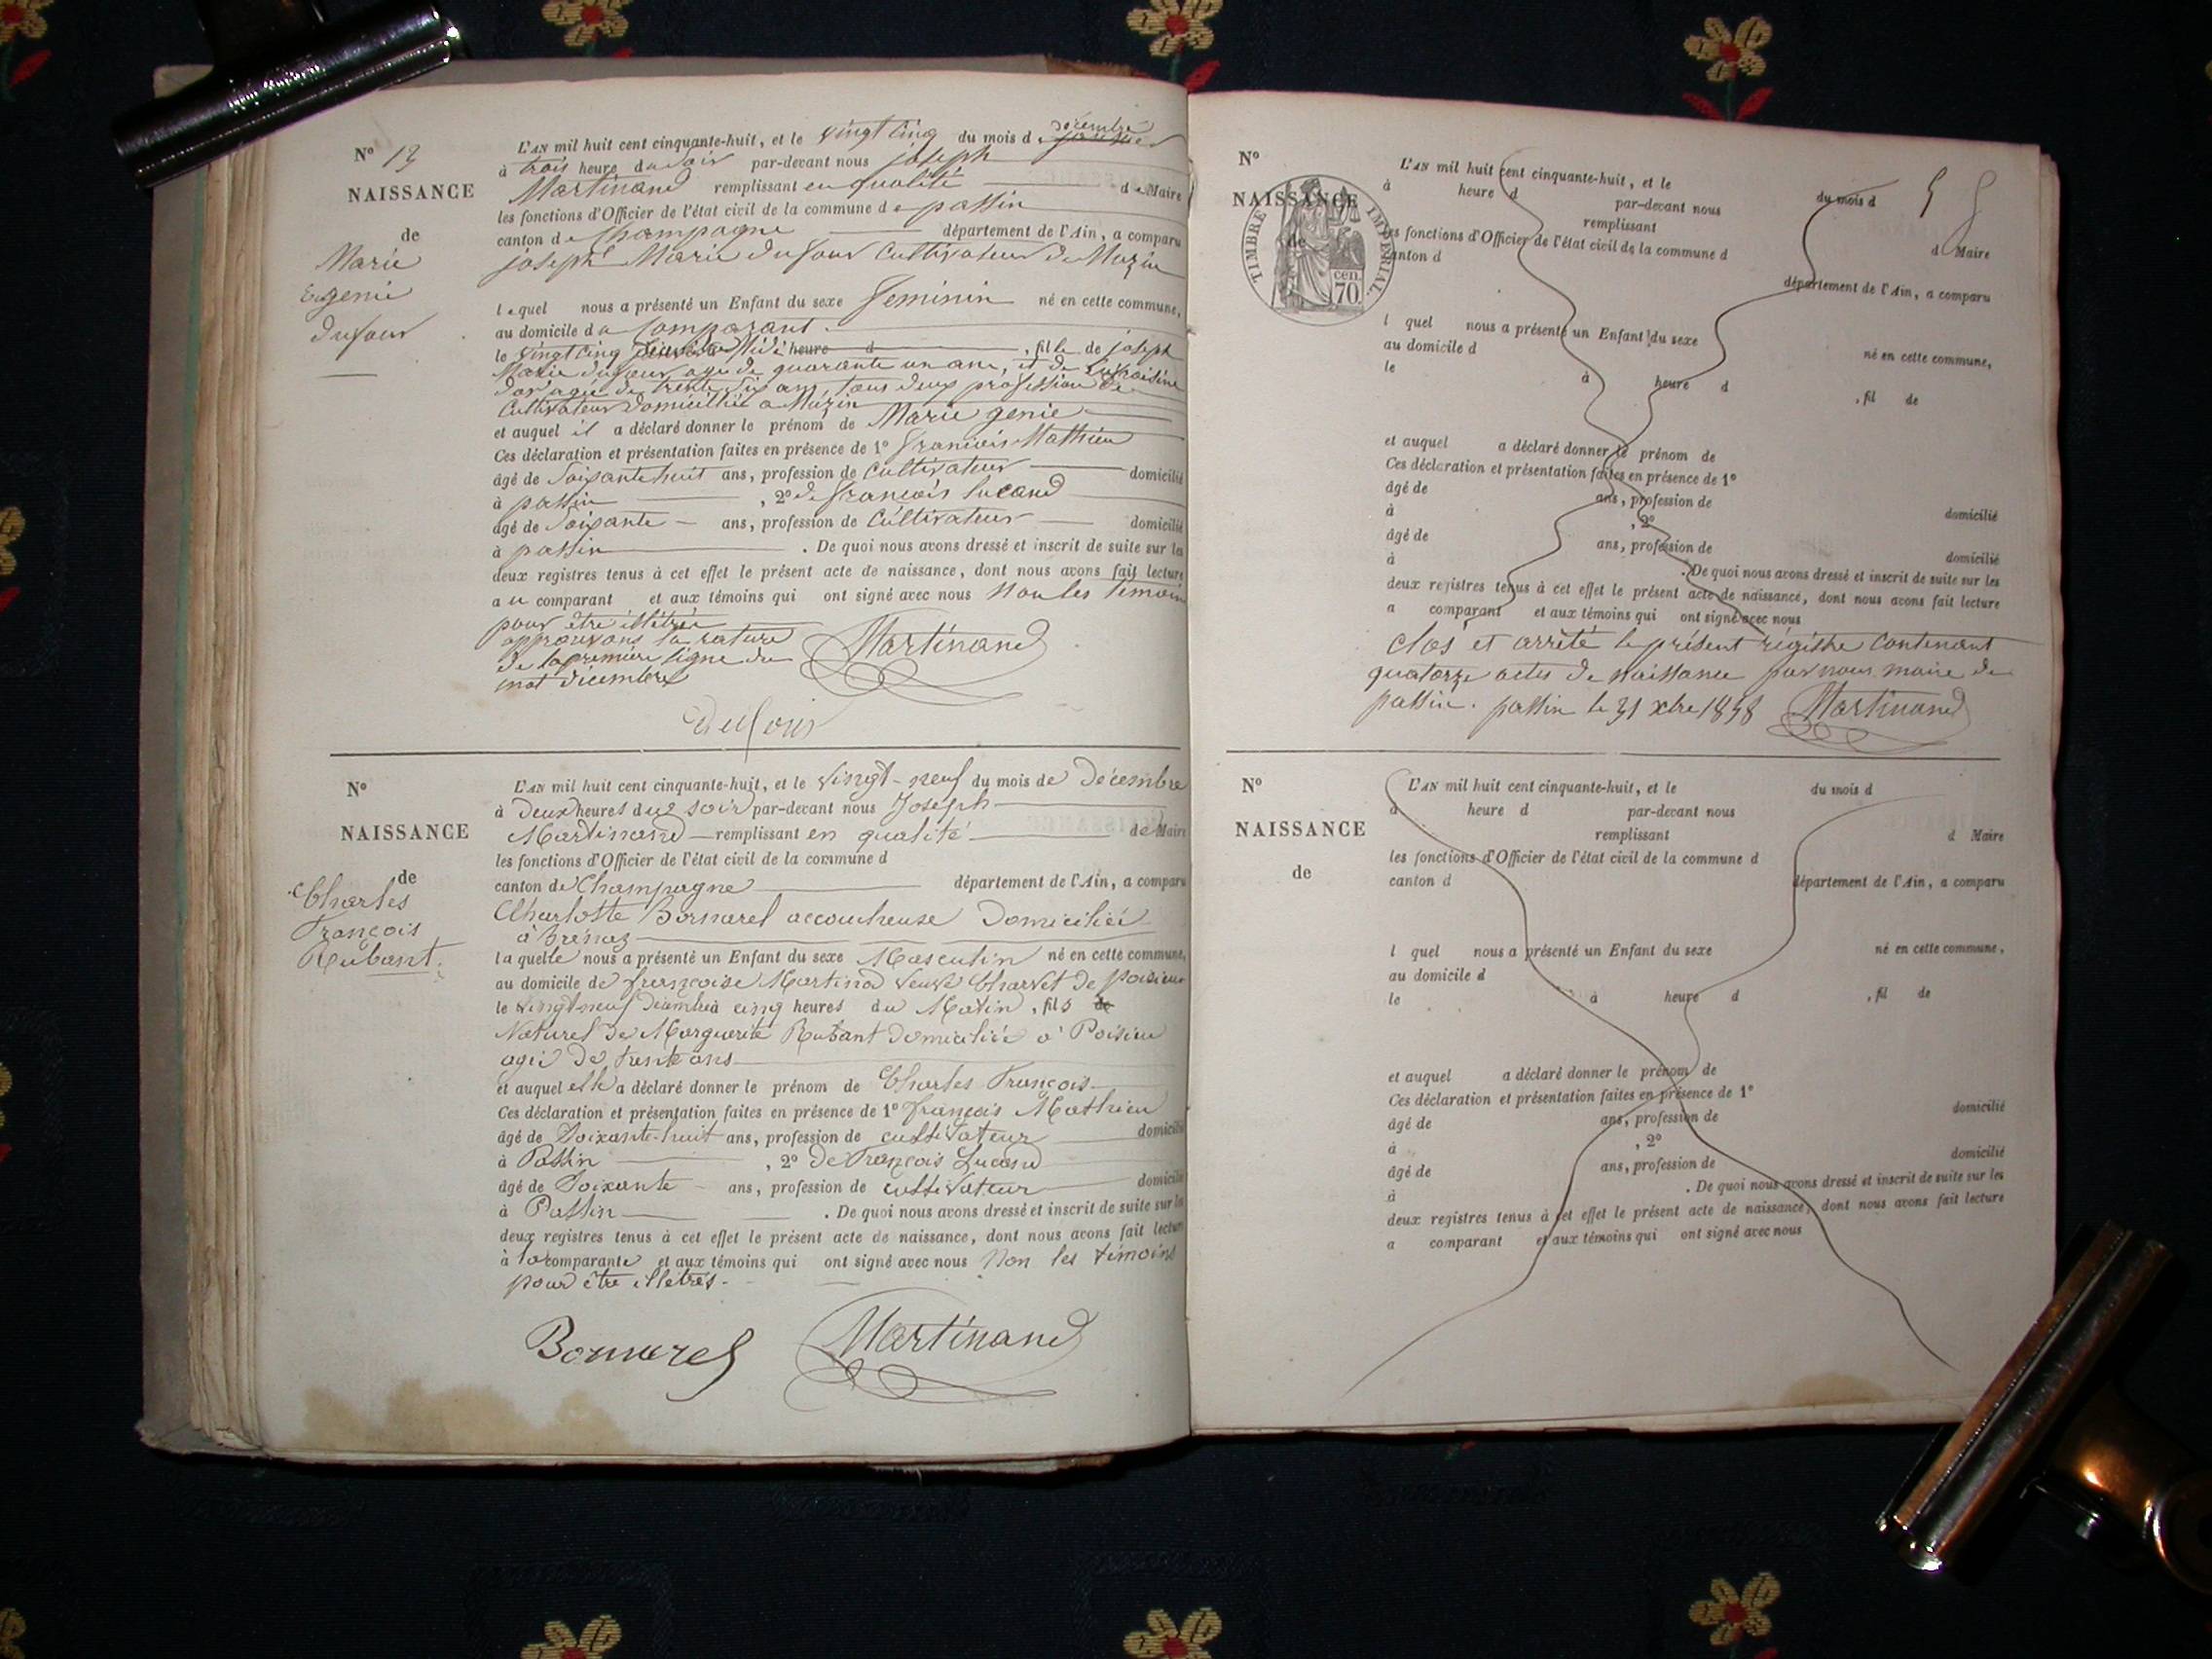 N° 13
NAISSANCE
de
Marie
Eugenie
Dufour
L'AN mil huit cent cinquante-huit, et le vingt cinq du mois de décembre
à trois heure du soir par-devant nous joseph
Martinand remplissant en qualité de Maire
les fonctions d'Officier de l'état civil de la commune de passin
canton de Champagne département de l'Ain, a comparu
joseph Marie dufour Cultivateur de Muzin
lequel nous a présenté un Enfant du sexe feminin né en cette commune,
au domicile du Comparant
le vingt cinq à Midi heure d , fille de joseph
Marie dufour agé de quarante un ans, et de
agée de trente six ans, tous deux profession de
Cultivateur domicilié a Muzin
et auquel il a déclaré donner le prénom de Marie genie
Ces déclaration et présentation faites en présence de 1° francois Mathieu
âgé de Soixante huit ans, profession de Cultivateur domicilié
à passin , 2° de francois lucand
âgé de Soixante ans, profession de Cultivateur domicilié
à passin . De quoi nous avons dressé et inscrit de suite sur les
deux registres tenus à cet effet le présent acte de naissance, dont nous avons fait lecture
au comparant et aux témoins qui ont signé avec nous Non les temoin
pour être illétrée
approuvons la rature
de la premiere ligne du
mot décembre
Martinand
dufour
N°
NAISSANCE
de
Charles
François
Rubant.
L'AN mil huit cent cinquante-huit, et le vingt-neuf du mois de Décembre
à Deux heures du soir par-devant nous Joseph
Martinand remplissant en qualité de Maire
les fonctions d'Officier de l'état civil de la commune d
canton de Champagne département de l'Ain, a comparu
Charlotte Bornarel accoucheuse Domiciliée
à Brénaz
laquelle nous a présenté un Enfant du sexe Masculin né en cette commune,
au domicile de françoise Martinod veuve Charvet de poisieu
le vingt neuf Décembre à cinq heures du Matin, fils de
Naturel de Marguerite Rubant Domiciliée à Poisieu
agée de trente ans
et auquel elle a déclaré donner le prénom de Charles François
Ces déclaration et présentation faites en présence de 1° françois Mathieu
âgé de Soixante-huit ans, profession de cultivateur domicilié
à Passin , 2° de François Lucand
âgé de Soixante ans, profession de cultivateur domicilié
à Passin . De quoi nous avons dressé et inscrit de suite sur les
deux registres tenus à cet effet le présent acte de naissance, dont nous avons fait lecture
à la comparante et aux témoins qui ont signé avec nous Non les témoins
pour être illétrés.
Bornarel Martinand
N°
NAISSANCE
de
TIMBRE IMPERIAL
70 cen.
L'AN mil huit cent cinquante-huit, et le du mois d
à heure d par-devant nous
remplissant d Maire
les fonctions d'Officier de l'état civil de la commune d
canton d département de l'Ain, a comparu
l quel nous a présenté un Enfant du sexe né en cette commune,
au domicile d
le à heure d , fil de
et auquel a déclaré donner le prénom de
Ces déclaration et présentation faites en présence de 1°
âgé de ans, profession de domicilié
à , 2°
âgé de ans, profession de domicilié
à . De quoi nous avons dressé et inscrit de suite sur les
deux registres tenus à cet effet le présent acte de naissance, dont nous avons fait lecture
a comparant et aux témoins qui ont signé avec nous
Clos et arrêté le présent régistre contenant
quatorze actes de Naissance par nous maire de
passin. passin le 31 xbre 1858 Martinand
N°
NAISSANCE
de
L'AN mil huit cent cinquante-huit, et le du mois d
à heure d par-devant nous
remplissant d Maire
les fonctions d'Officier de l'état civil de la commune d
canton d département de l'Ain, a comparu
l quel nous a présenté un Enfant du sexe né en cette commune,
au domicile d
le à heure d , fil de
et auquel a déclaré donner le prénom de
Ces déclaration et présentation faites en présence de 1°
âgé de ans, profession de domicilié
à , 2°
âgé de ans, profession de domicilié
à . De quoi nous avons dressé et inscrit de suite sur les
deux registres tenus à cet effet le présent acte de naissance, dont nous avons fait lecture
a comparant et aux témoins qui ont signé avec nous